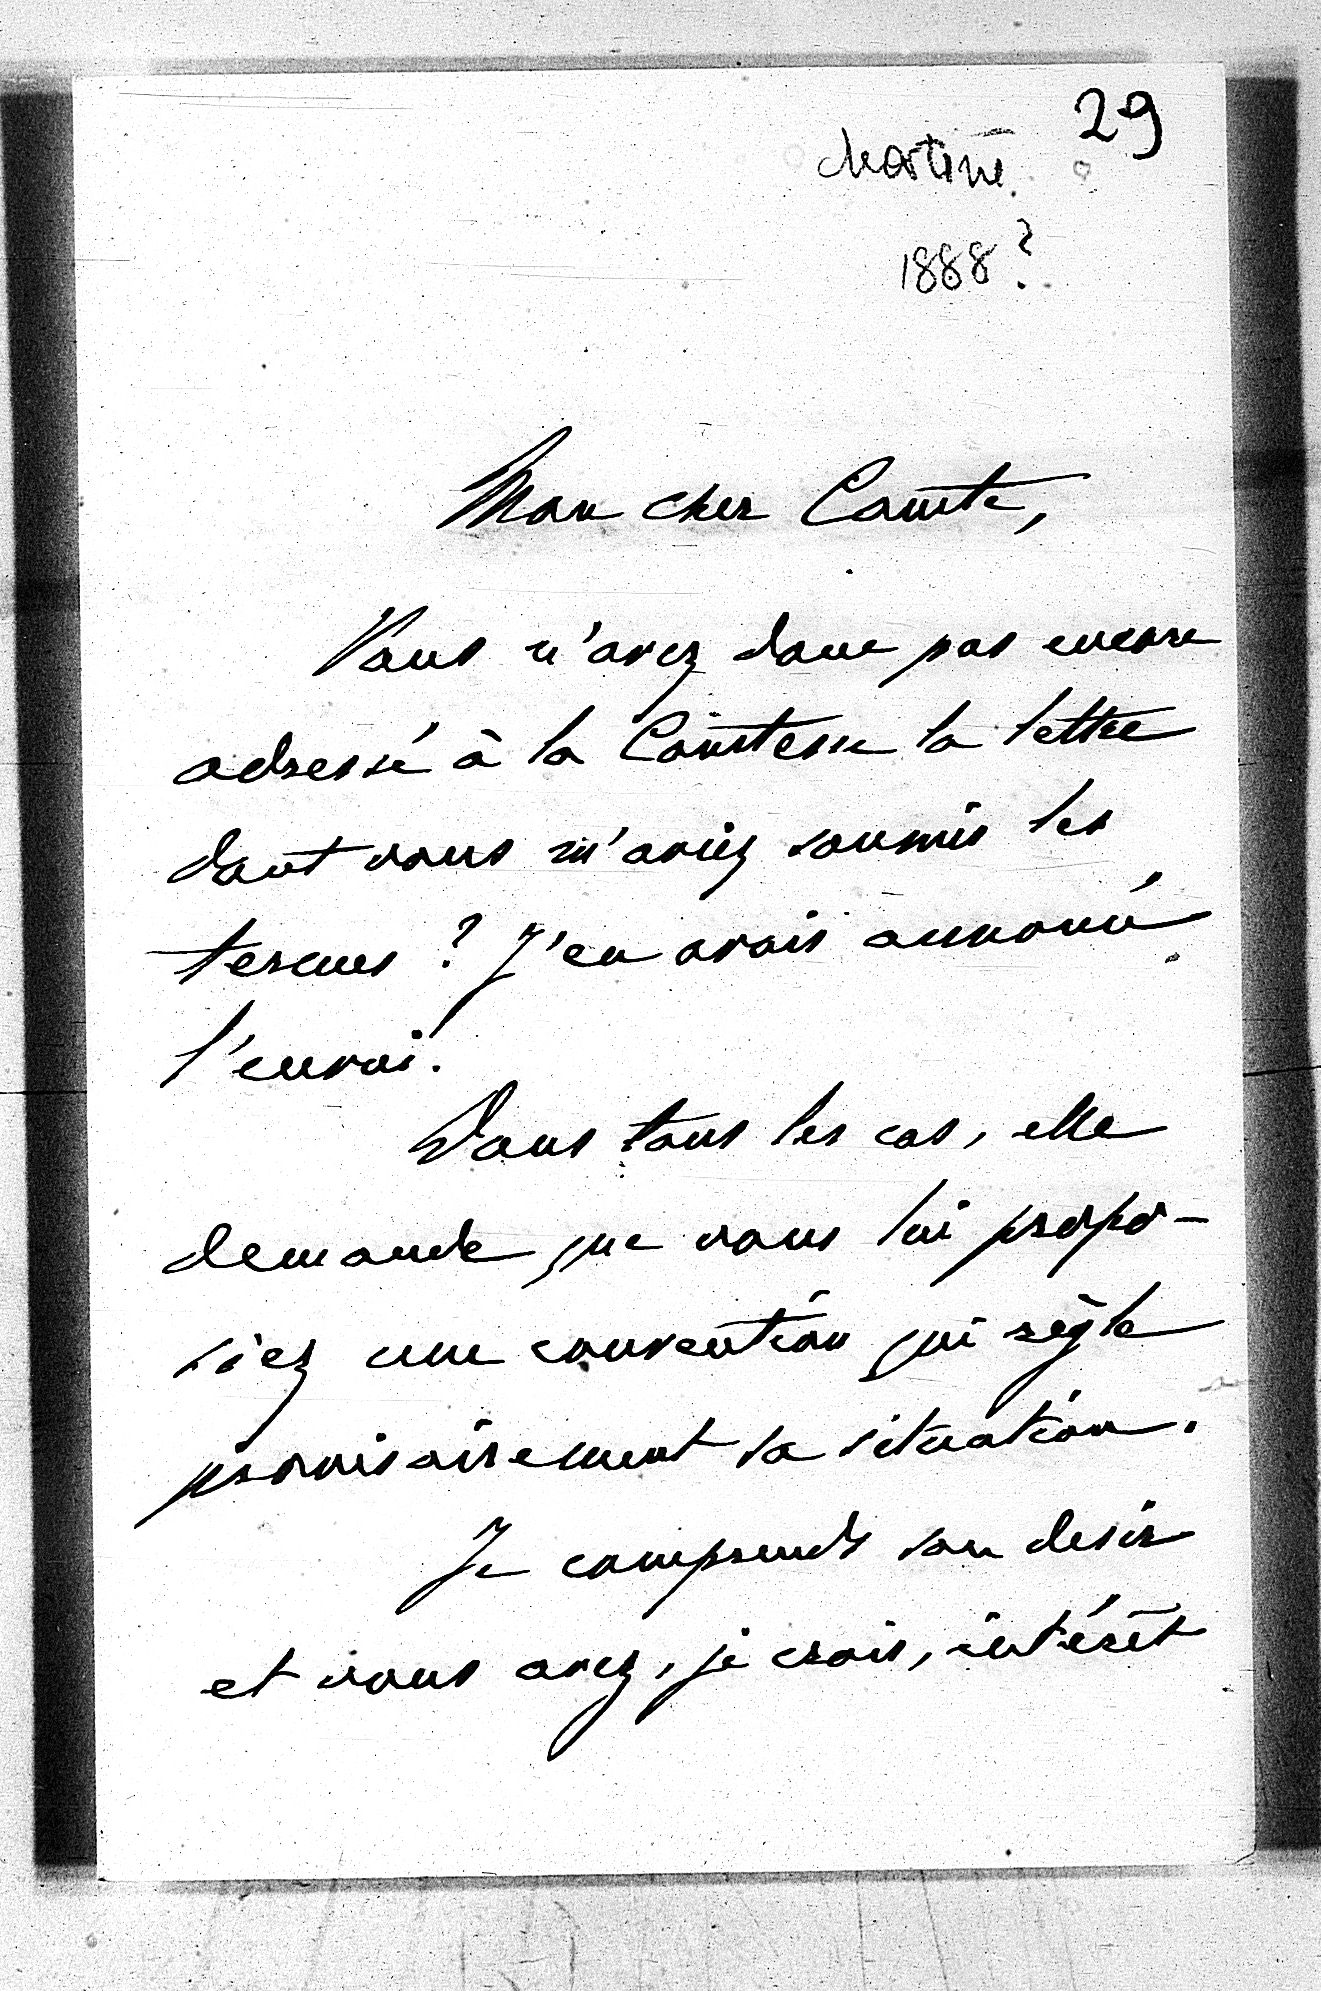 29
Martine
1888?
Mon cher Comte,
Vous n'avez donc pas encore
adressé à la Comtesse la lettre
dont vous m'aviez soumis les
termes ? J'en avais annoncé
l'envoi.
Dans tous les cas, elle
demande que vous lui propo-
siez une convention qui règle
provisoirement sa situation.
Je comprends son desir
et vous avez, je crois, intérêt